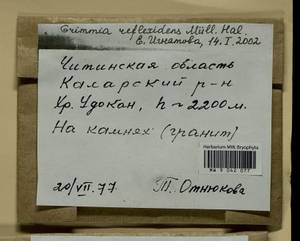 Grimmia reflexidens Müll. Hal.
Е. Игнатова, 14.I.2002
Читинская область
Каларский р-н
Хр. Удокан, h ~ 2200 м.
На камнях (гранит)
Herbarium MW, Bryophyta
MW 9 042 077
20/VII.77 Т. Отнюкова